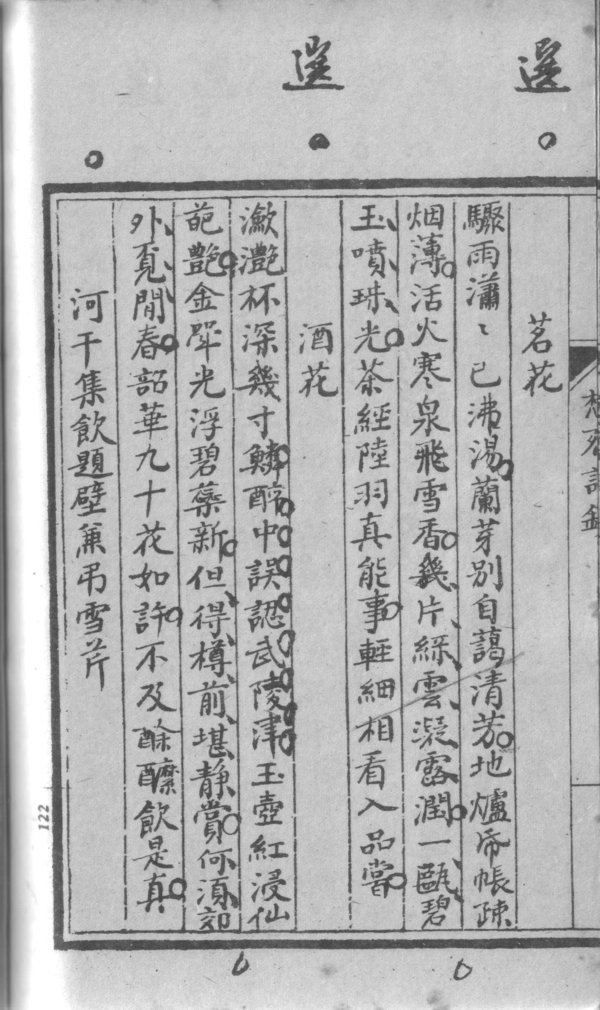 選
選
懋齋詩鈔
茗花
驟雨瀟〻已沸湯蘭芽別自謁清芬地爐帋帳疎
烟薄活火寒泉飛雪香幾片綠雲凝露潤一甌碧
玉噴珠光茶經陸羽真能事輕細相看入品嘗
酒花
瀲灔杯深幾寸鱗醉中誤認武陵津玉壺紅浸仙
葩艷金斝光浮碧蘂新但得樽前堪靜賞何須郊
外覔閒春韶華九十花如許不及酴醾飲是真
河干集飲題壁兼吊雪芹
122